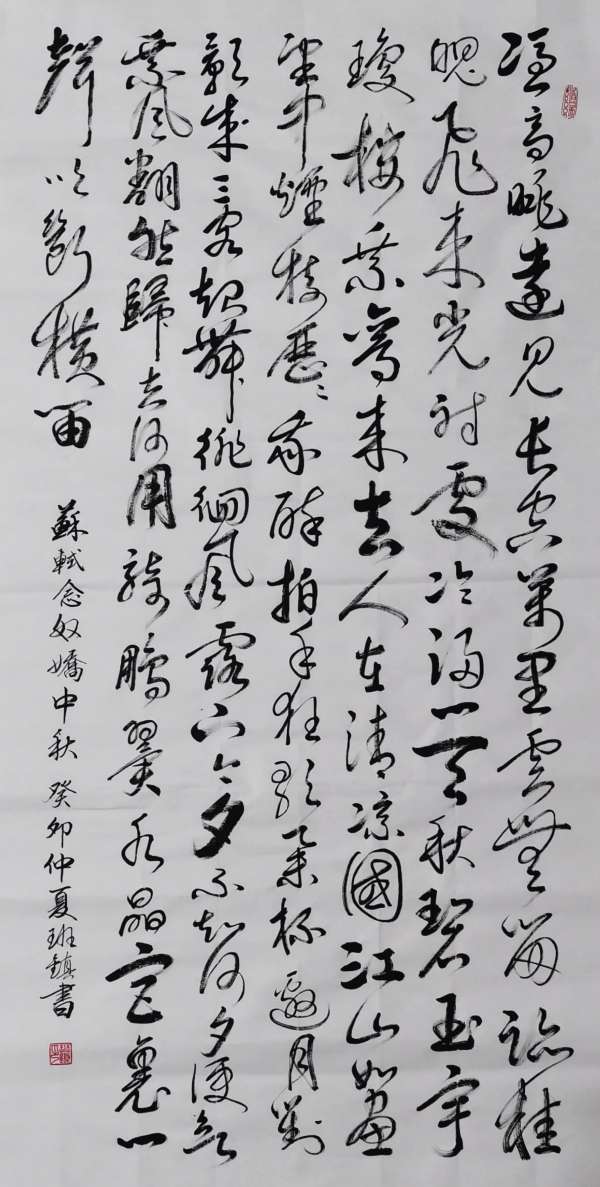 憑高眺遠見長空萬里雲無留跡桂
魄飛來光射處冷浸一天秋碧玉宇
瓊樓乘鸞來去人在清涼國江山如畫
望中煙樹歷歷我醉拍手狂歌舉杯邀月對
影成三客起舞徘徊風露下今夕不知何夕便欲
乘風翻然歸去何用騎鵬翼水晶宮裏一
聲吹斷橫笛
蘇軾念奴嬌中秋 癸卯仲夏班鎮書